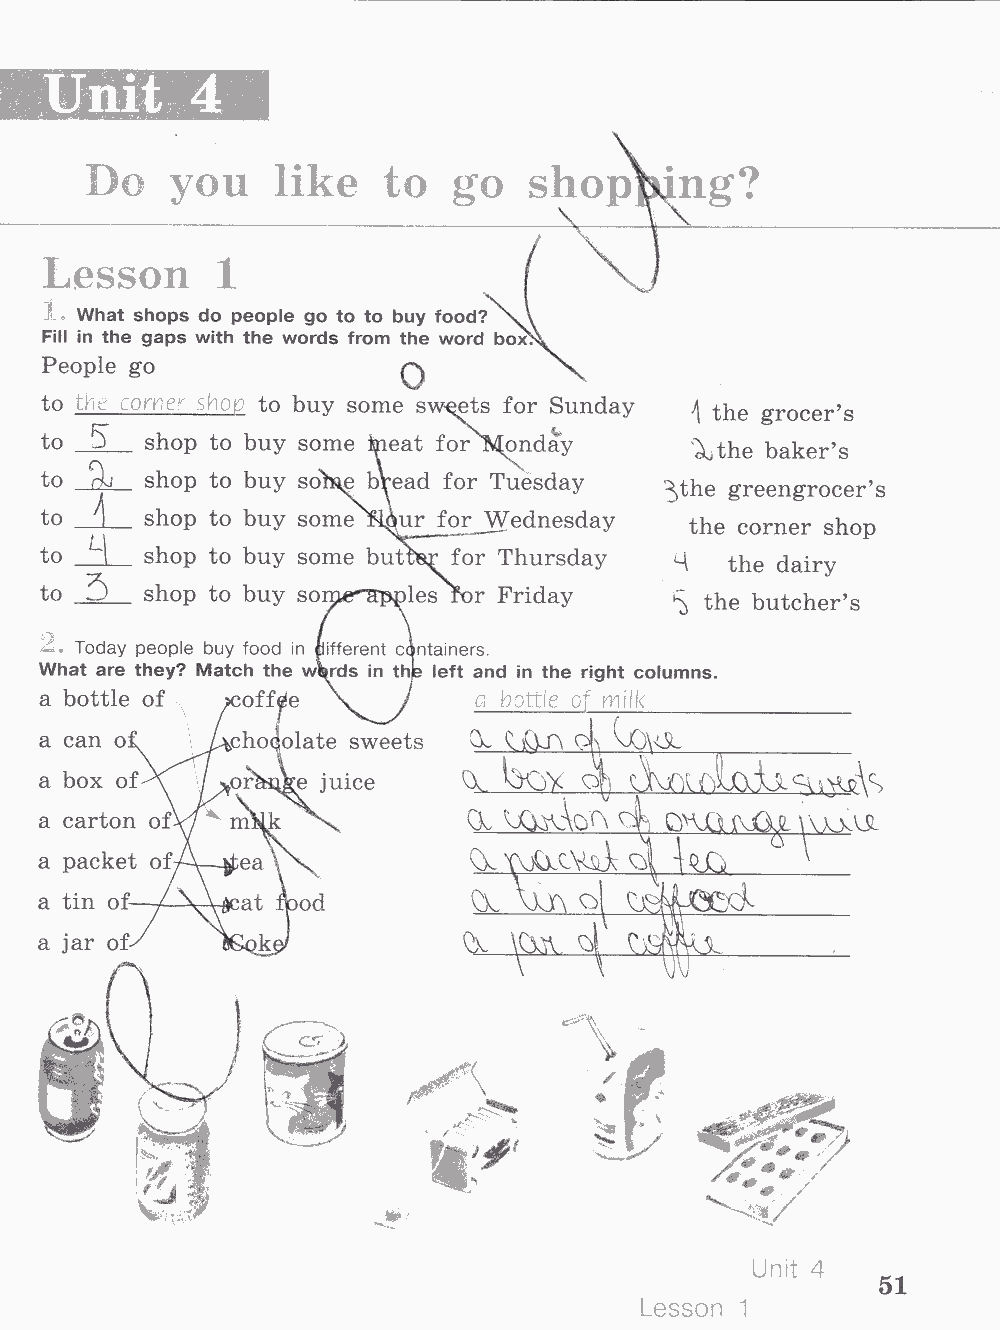 Unit 4
Do you like to go shopping?
Lesson 1
1. What shops do people go to to buy food?
Fill in the gaps with the words from the word box.
People go
to the corner shop to buy some sweets for Sunday
to 5 shop to buy some meat for Monday
to 2 shop to buy some bread for Tuesday
to 1 shop to buy some flour for Wednesday
to 4 shop to buy some butter for Thursday
to 3 shop to buy some apples for Friday
1 the grocer's
2 the baker's
3 the greengrocer's
the corner shop
4 the dairy
5 the butcher's
2. Today people buy food in different containers.
What are they? Match the words in the left and in the right columns.
a bottle of coffee a bottle of milk
a can of chocolate sweets a can of Coke
a box of orange juice a box of chocolate sweets
a carton of milk a carton of orange juice
a packet of tea a packet of tea
a tin of cat food a tin of
a jar of Coke a jar of coffie
Unit 4
51
Lesson 1